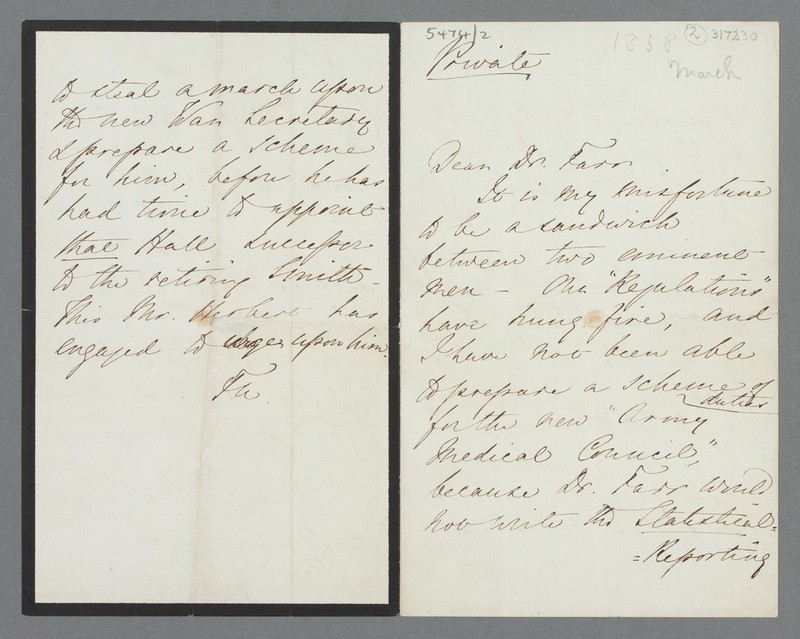 5474/2
② 317230
1858
March
Private
Dear Dr. Farr
It is my misfortune
to be a sandwich
between two eminent
men - Our "Regulations"
have hung fire, and
I have not been able
to prepare a scheme of
duties
for the new "Army
Medical Council,"
because Dr. Farr would
not write the Statistical=
=Reporting
to steal a march upon
the new War Secretary
& prepare a scheme
for him, before he has
had time to appoint
that Hall successor
to the retiring Smith -
This Mr. Herbert has
engaged to upon him.